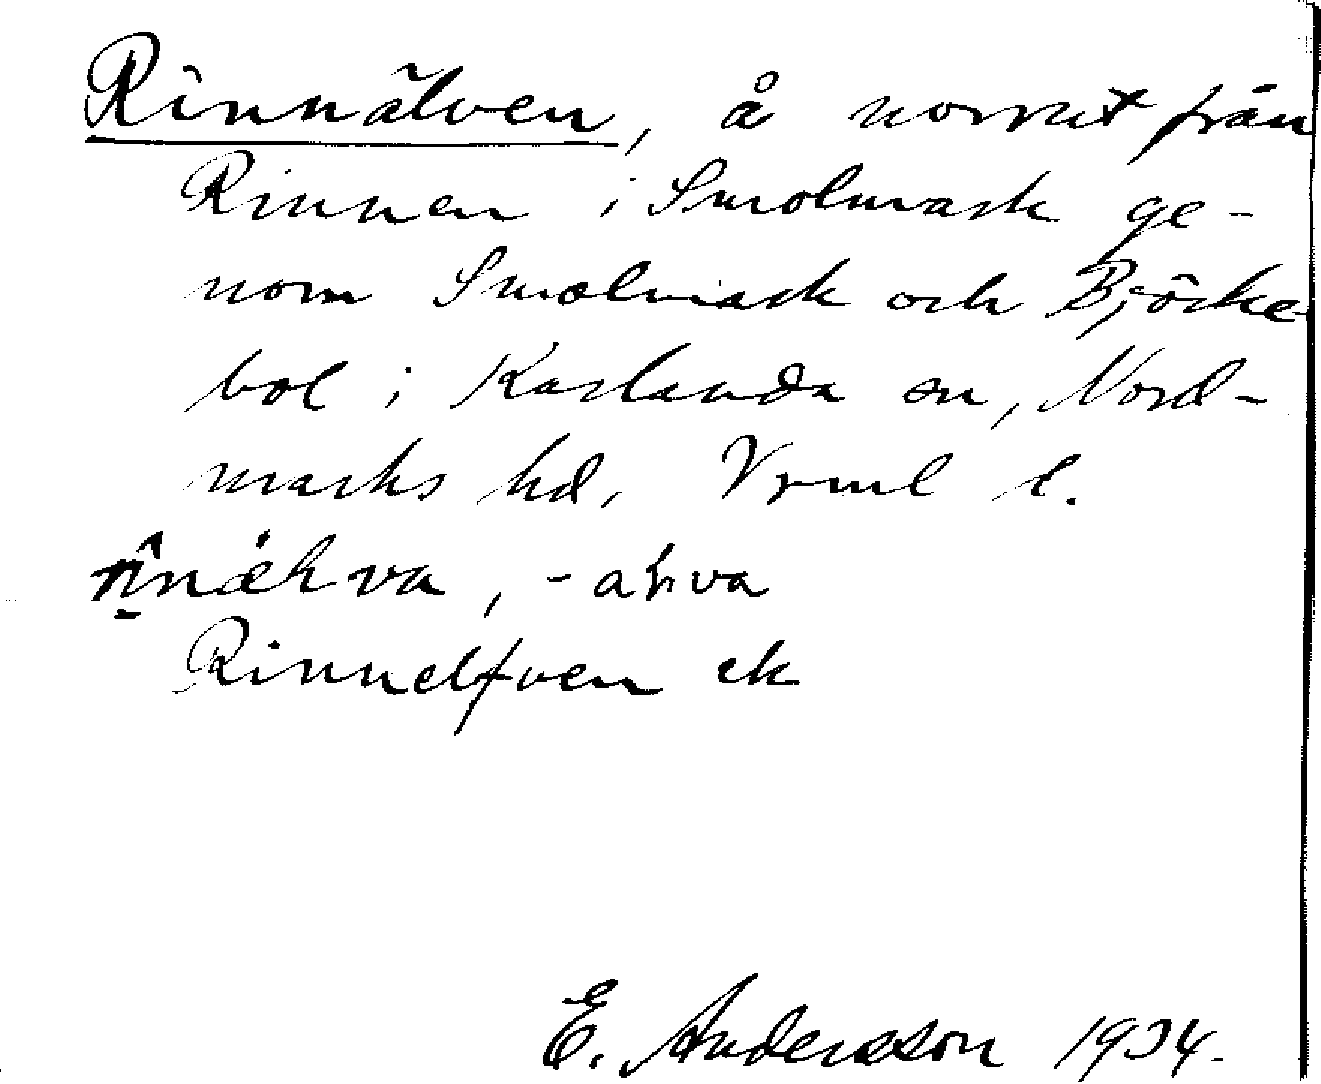 Rinnälven, å norrut från
Rinnen i Smolmark ge-
nom Smolmark och Björke-
bol i Karlanda sn, Nord-
marks hd, Vrml l.
Rinnelfven ek
E. Andersson 1934.